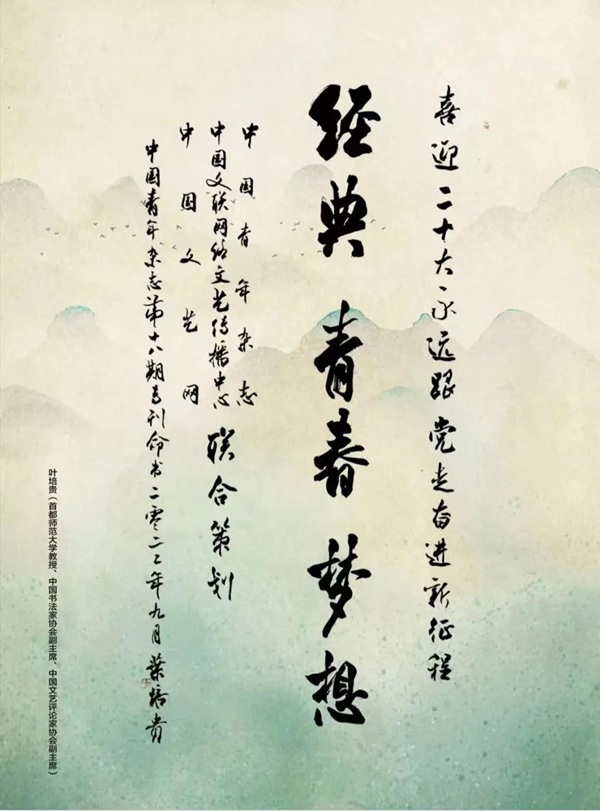 喜迎二十大 永远跟党走 奋进新征程
经典 青春 梦想
中国青年杂志
中国文联网络文艺传播中心 联合策划
中国文艺网
中国青年杂志第十八期专刊命书二零二二年九月 叶培贵
叶培贵（首都师范大学教授、中国书法家协会副主席、中国文艺评论家协会副主席）